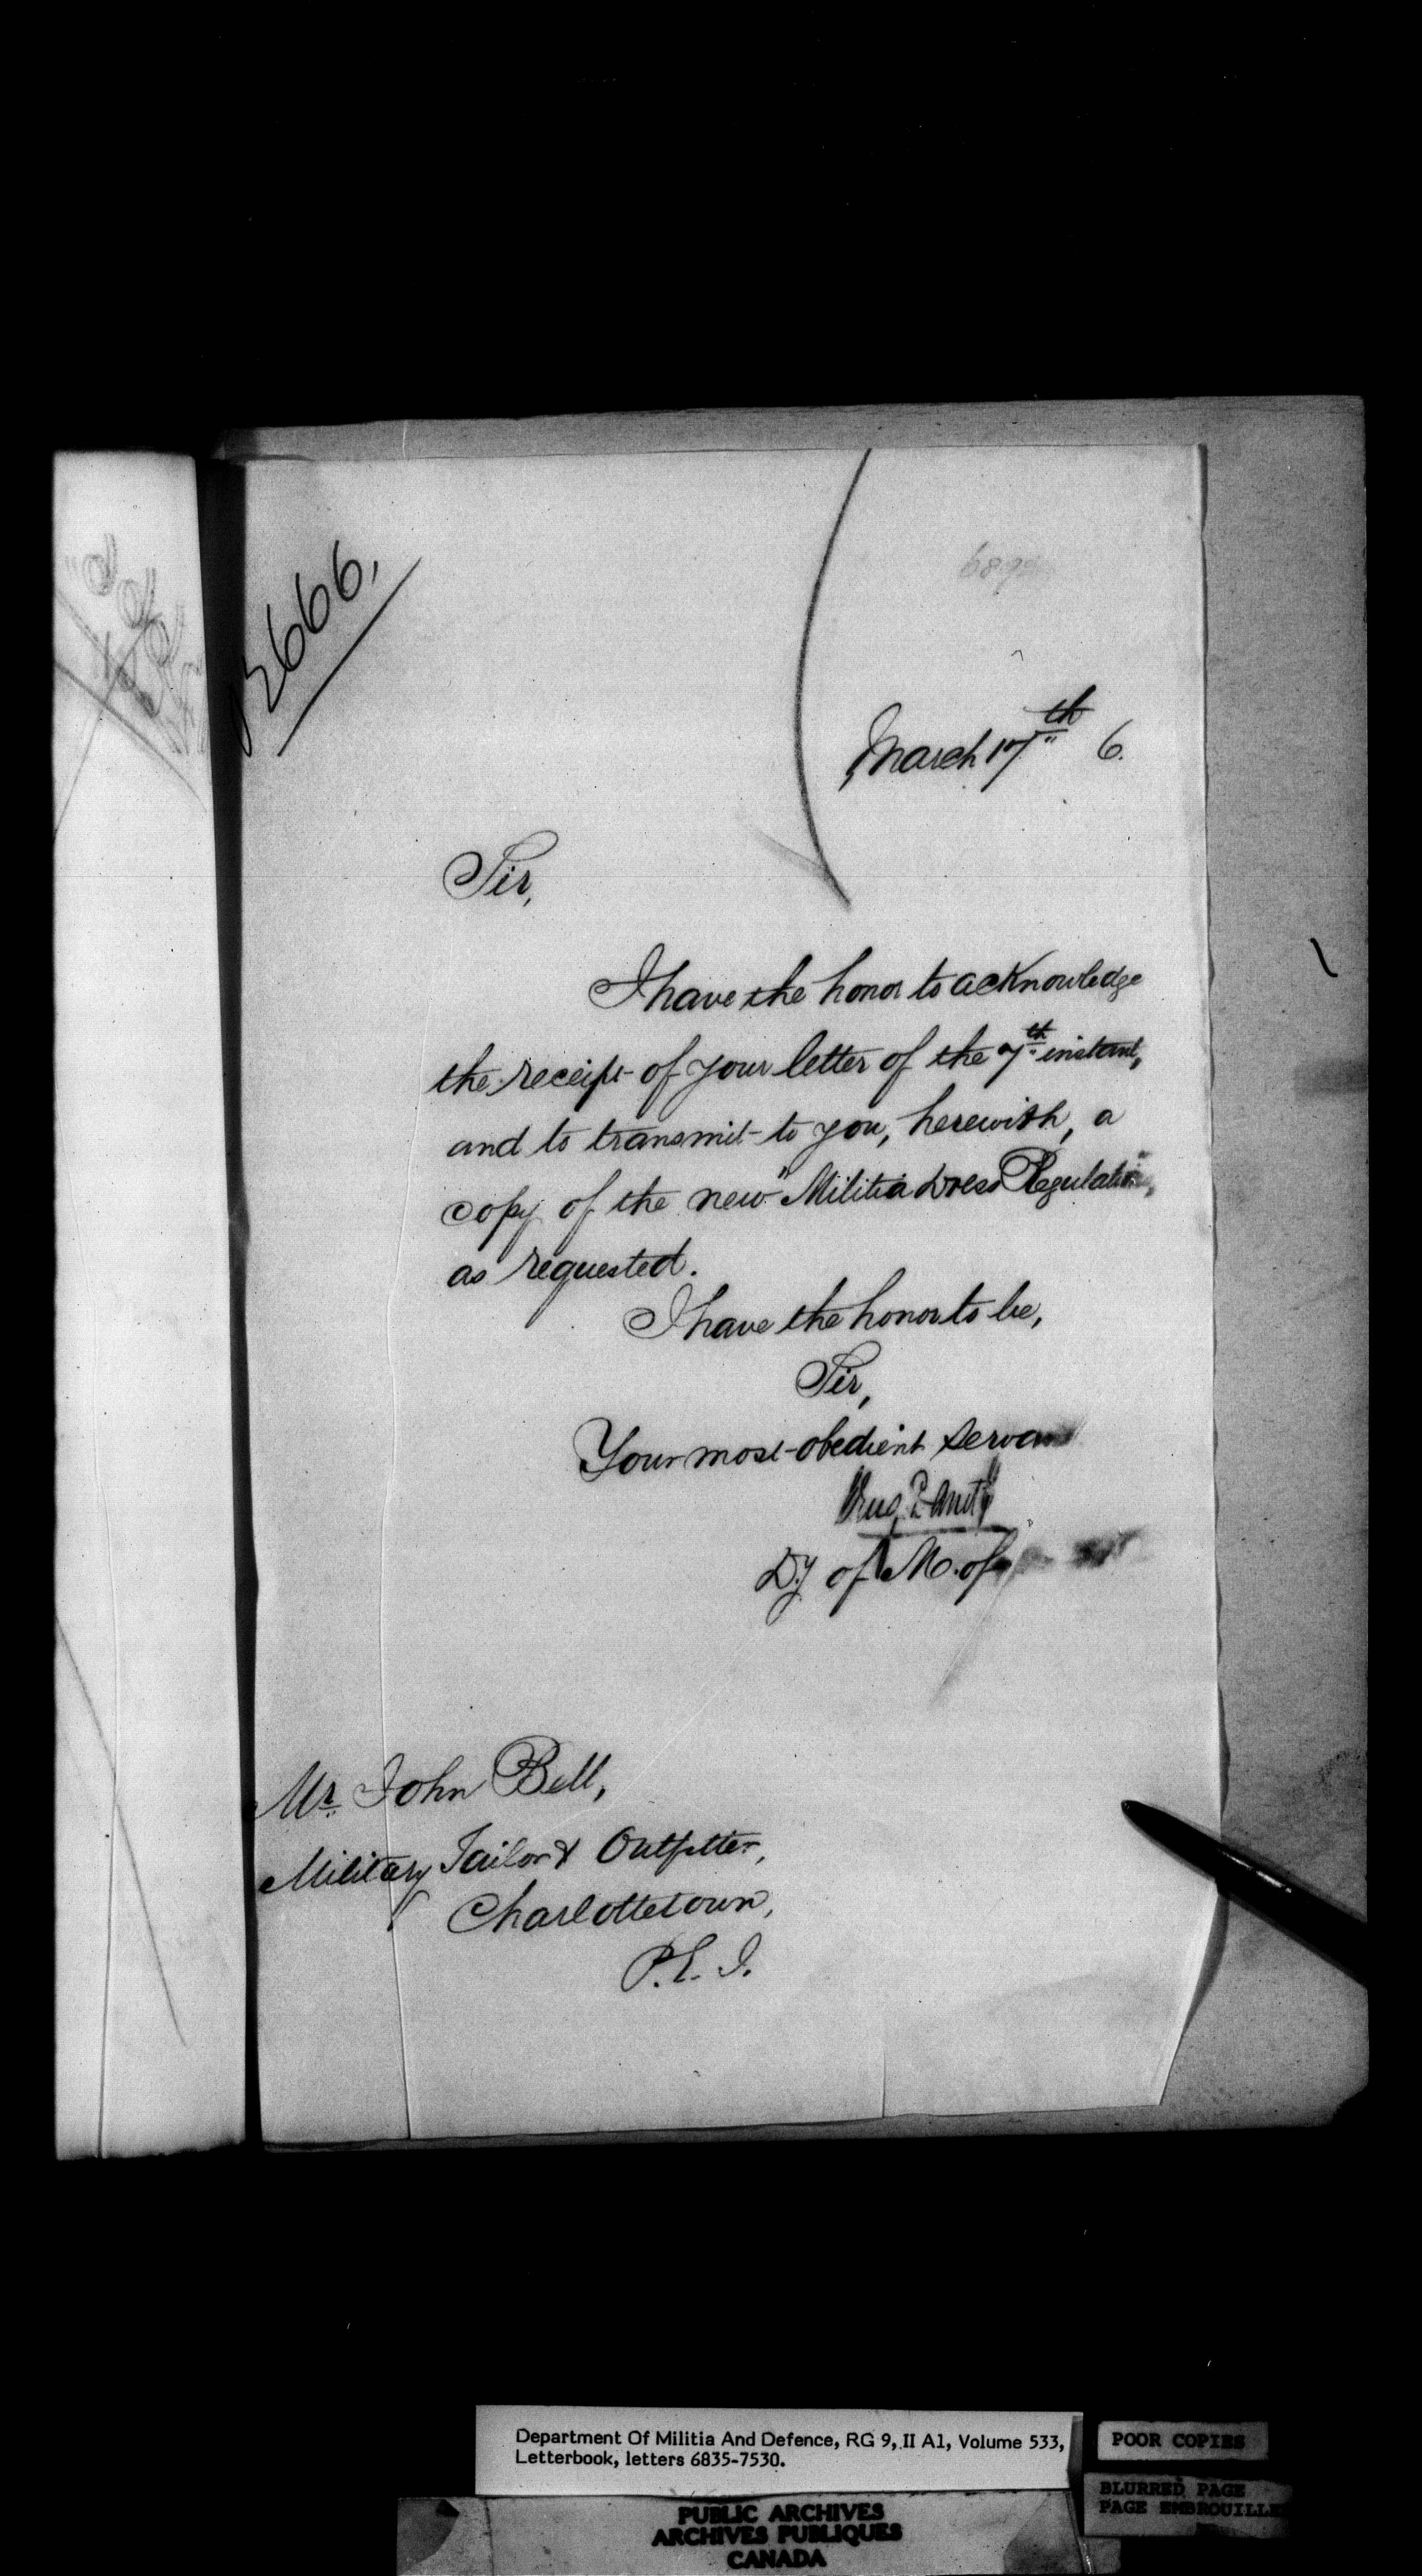 3666.
March 17th 6.
Sir,
I have the honor to acknowledge
the receipt of your letter of the 7th instant,
and to transmit to you, herewith, a
copy of the new "Militia Dress Regulations",
as requested.
I have the honor to be,
Sir,
Your most obedient servant
Dy of M. of
Mr John Bell,
Military Tailor & Outfitter,
Charlottetown,
P.E.I.
Department Of Militia And Defence, RG 9, II A1, Volume 533,
Letterbook, letters 6835-7530.
POOR COPIES
BLURRED PAGE
PAGE EMBROUILLE
PUBLIC ARCHIVES
ARCHIVES PUBLIQUES
CANADA